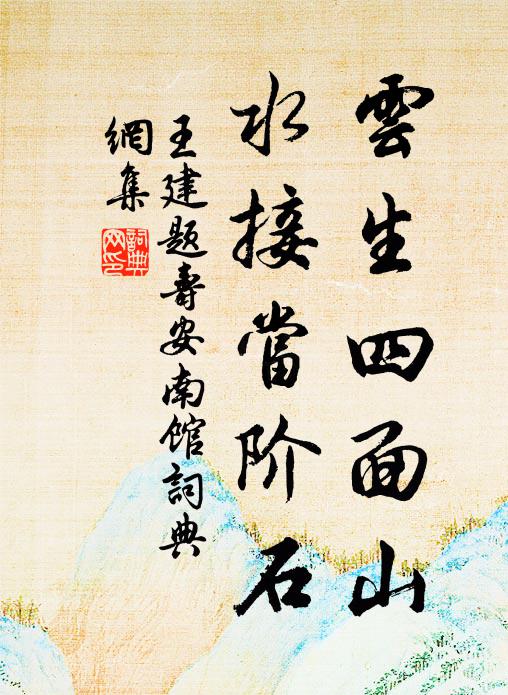 雲生四面山
水接當阶石
王建题壽安南馆詞典
網集
詞典
网印